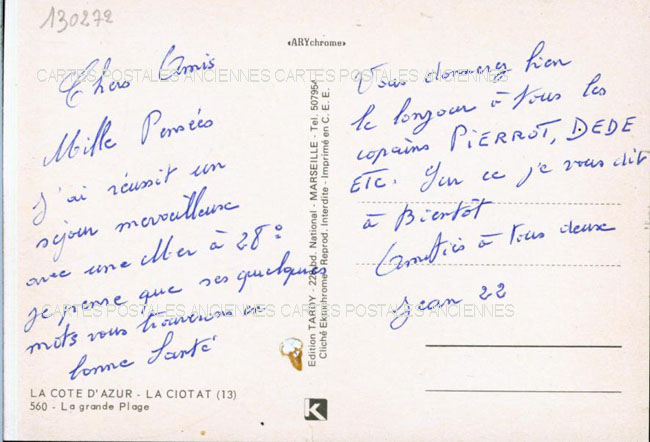 130272
«ARYchrome»
CARTES POSTALES ANCIENNES CARTES POSTALES ANCIENNES
Chers Amis
Mille Pensées
J'ai réussit un
sejour merveilleuse
avec une Mer à 28°
je pense que ses quelques
mots vous trouverons en
bonne Santé
CARTES POSTALES ANCIENNES CARTES POSTALES ANCIENNES
LA COTE D'AZUR - LA CIOTAT (13)
560 - La grande Plage
Edition TARDY - bd. National - MARSEILLE - Tel. 507954
Cliché Ektachrome - Reprod. Interdite - Imprimé en C. E. E.
K
Vous donnerez bien
le bonjour à Tous les
copains PIERROT, DEDE
ETC. Sur ce je vous dit
à Bientôt
Amitiés à tous deux
Jean 22